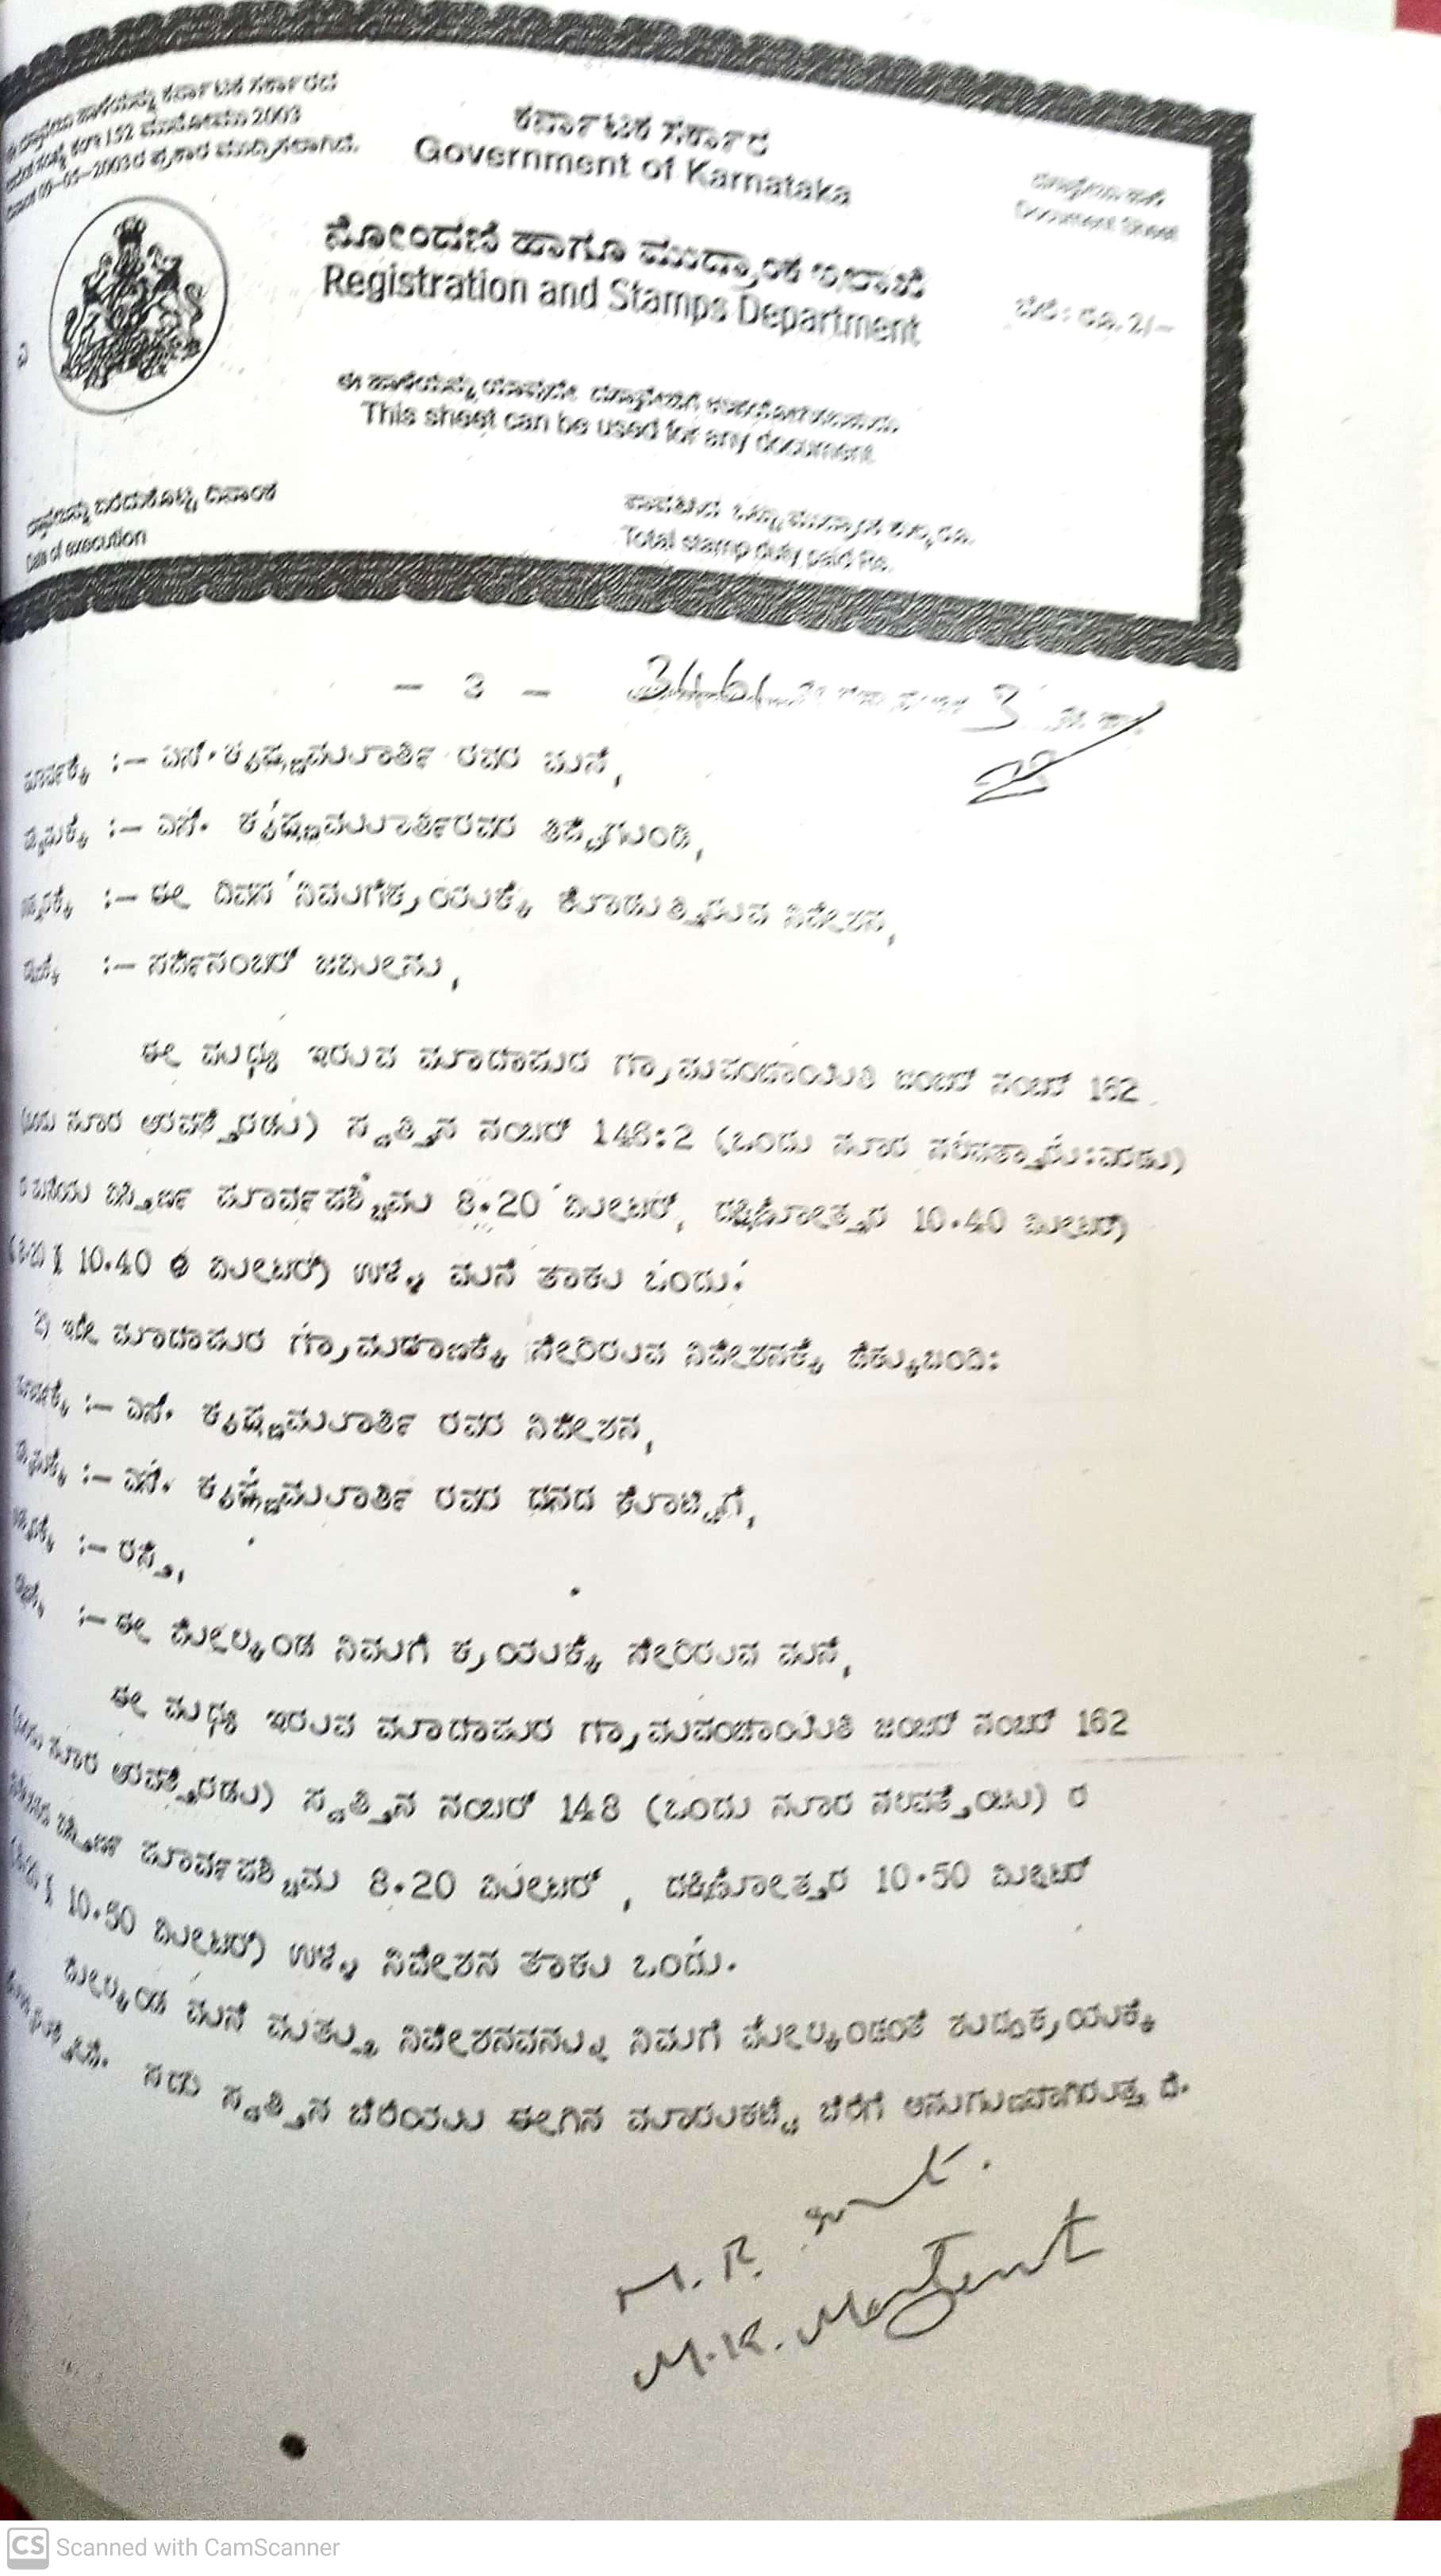 ಈ ದಸ್ತಾವೇಜು ಹಾಳೆಯನ್ನು ಕರ್ನಾಟಕ ಸರ್ಕಾರದ
152 ಮುನೋಮು 2003
09-05-2003ರ ಪ್ರಕಾರ ಮುದ್ರಿಸಲಾಗಿದೆ.
ಕರ್ನಾಟಕ ಸರ್ಕಾರ
Government of Karnataka
ದಸ್ತಾವೇಜು ಹಾಳೆ
Document Sheet
ನೋಂದಣಿ ಹಾಗೂ ಮುದ್ರಾಂಕ ಇಲಾಖೆ
Registration and Stamps Department
ಬೆಲೆ : ರೂ. 2/-
ಈ ಹಾಳೆಯನ್ನು ಯಾವುದೇ ದಸ್ತಾವೇಜಿಗೆ ಉಪಯೋಗಿಸಬಹುದು
This sheet can be used for any document
ಬರೆದುಕೊಟ್ಟ ದಿನಾಂಕ
Date of execution
ಪಾವತಿಸಿದ ಒಟ್ಟು ಮುದ್ರಾಂಕ ಶುಲ್ಕ ರೂ.
Total stamp duty paid Rs.
- 3 - 3461 3
ಪೂರ್ವಕ್ಕೆ :- ಎಸ್. ಕೃಷ್ಣಮೂರ್ತಿ ರವರ ಮನೆ,
ಪಶ್ಚಿಮಕ್ಕೆ :- ಎಸ್. ಕೃಷ್ಣಮೂರ್ತಿರವರ ತಿಪ್ಪೆಗುಂಡಿ,
:- ಈ ದಿವಸ ನಿಮಗೆ ಕ್ರಯಕ್ಕೆ ಕೊಡುತ್ತಿರುವ ನಿವೇಶನ,
:- ಸರ್ವೆನಂಬರ್ ಜಮೀನು,
ಈ ಮಧ್ಯೆ ಇರುವ ಮಾದಾಪುರ ಗ್ರಾಮಪಂಚಾಯಿತಿ ಜಂಬರ್ ನಂಬರ್ 162
(ಒಂದು ನೂರ ಅರವತ್ತೆರಡು) ಸ್ವತ್ತಿನ ನಂಬರ್ 148:2 (ಒಂದು ನೂರ
ರ ಮನೆಯ ವಿಸ್ತೀರ್ಣ ಪೂರ್ವಪಶ್ಚಿಮ 8.20 ಮೀಟರ್, ದಕ್ಷಿಣೋತ್ತರ 10.40 ಮೀಟರ್)
10.40 ಮೀಟರ್) ಉಳ್ಳ ಮನೆ ತಾಕು ಒಂದು.
2) ಇದೇ ಮಾದಾಪುರ ಗ್ರಾಮಠಾಣಕ್ಕೆ ಸೇರಿರುವ ನಿವೇಶನಕ್ಕೆ ಚೆಕ್ಕುಬಂದಿ:
ಪೂರ್ವಕ್ಕೆ :- ಎಸ್. ಕೃಷ್ಣಮೂರ್ತಿ ರವರ ನಿವೇಶನ,
ಪಶ್ಚಿಮಕ್ಕೆ :- ಎಸ್. ಕೃಷ್ಣಮೂರ್ತಿ ರವರ ದನದ ಕೊಟ್ಟಿಗೆ,
:- ರಸ್ತೆ,
:- ಈ ಮೇಲ್ಕಂಡ ನಿಮಗೆ ಕ್ರಯಕ್ಕೆ ಸೇರಿರುವ ಮನೆ,
ಈ ಮಧ್ಯೆ ಇರುವ ಮಾದಾಪುರ ಗ್ರಾಮಪಂಚಾಯಿತಿ ಜಂಬರ್ ನಂಬರ್ 162
(ಒಂದು ನೂರ ಅರವತ್ತೆರಡು) ಸ್ವತ್ತಿನ ನಂಬರ್ 148 (ಒಂದು ನೂರ ನಲವತ್ತೆಂಟು) ರ
ನಿವೇಶನದ ವಿಸ್ತೀರ್ಣ ಪೂರ್ವಪಶ್ಚಿಮ 8.20 ಮೀಟರ್, ದಕ್ಷಿಣೋತ್ತರ 10.50 ಮೀಟರ್
10.50 ಮೀಟರ್) ಉಳ್ಳ ನಿವೇಶನ ತಾಕು ಒಂದು.
ಮೇಲ್ಕಂಡ ಮನೆ ಮತ್ತು ನಿವೇಶನವನ್ನು ನಿಮಗೆ ಮೇಲ್ಕಂಡಂತೆ ಶುದ್ಧಕ್ರಯಕ್ಕೆ
ಸದರಿ ಸ್ವತ್ತಿನ ಬೆಲೆಯು ಈಗಿನ ಮಾರುಕಟ್ಟೆ ಬೆಲೆಗೆ ಅನುಗುಣವಾಗಿರುತ್ತದೆ.
M. R.
M.K. Manjunat
CS Scanned with CamScanner